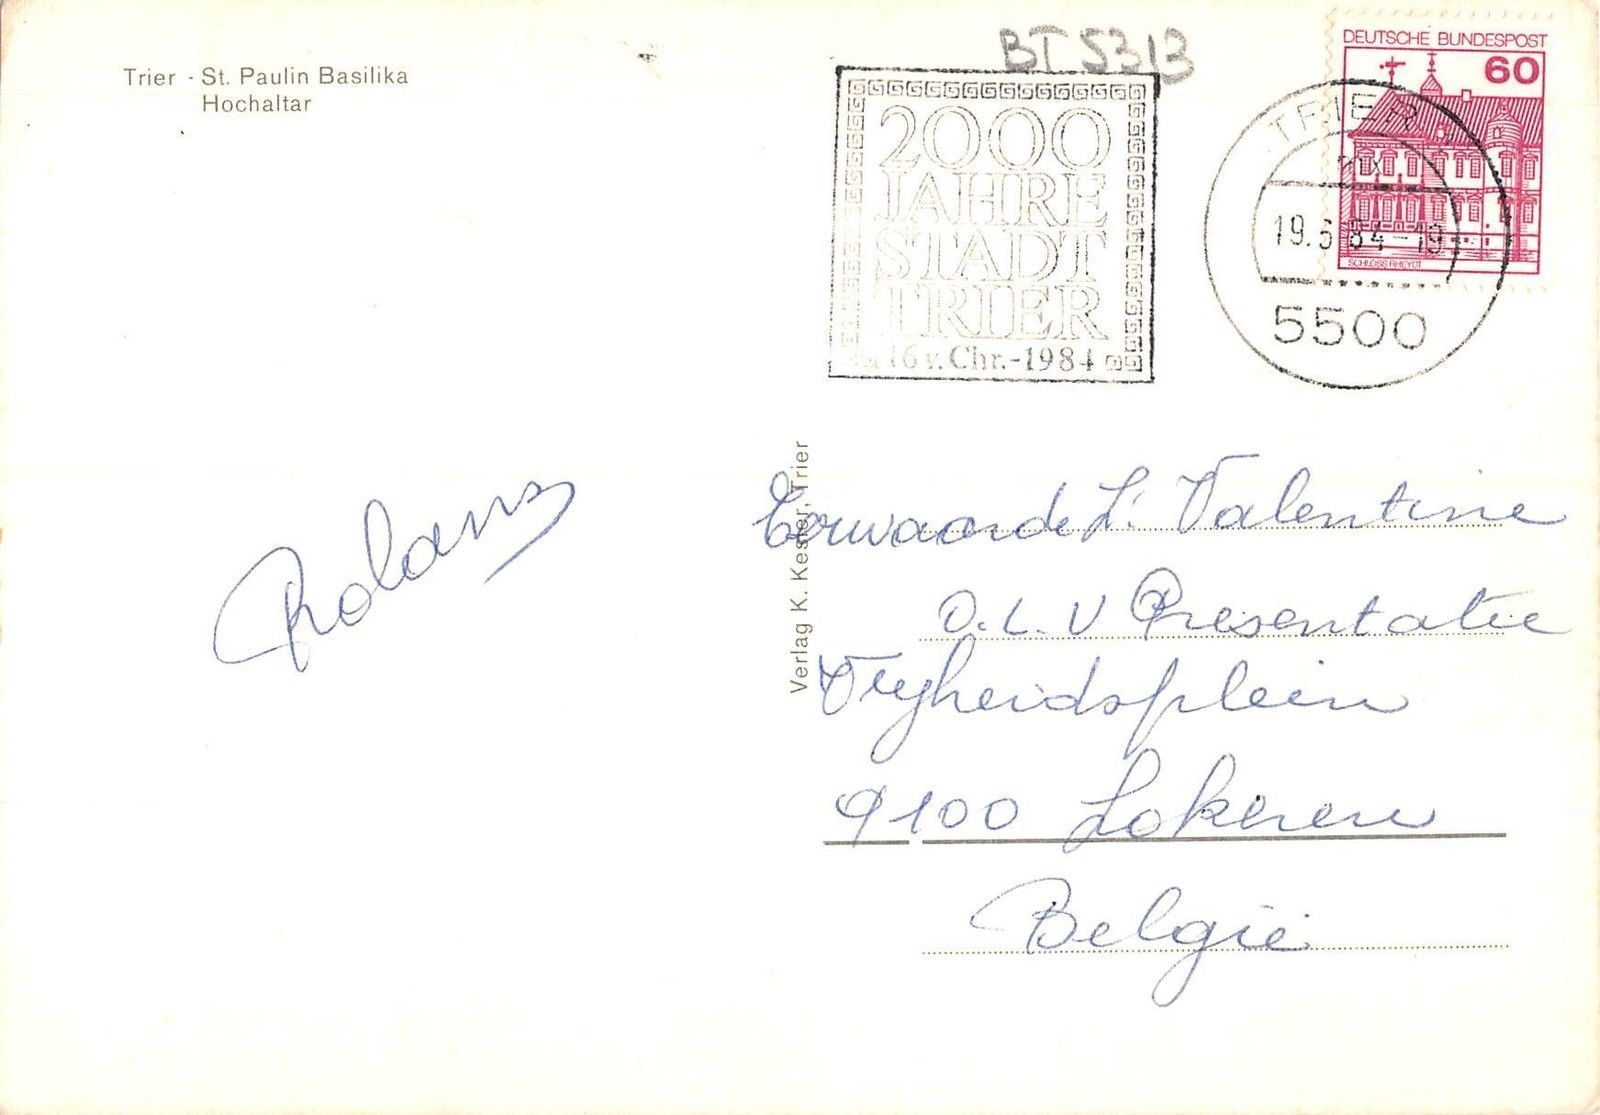 Trier - St. Paulin Basilika
Hochaltar
BT 5313
2000
JAHRE
STADT
TRIER
16 v. Chr.-1984
DEUTSCHE BUNDESPOST
60
SCHLOSS RHEYDT
TRIER
19.6.84-19
5500
Verlag K. Kester, Trier
Eerwaarde Z. Valentine
O.L.V Presentatie
Vryheidsplein
9100 Lokeren
België